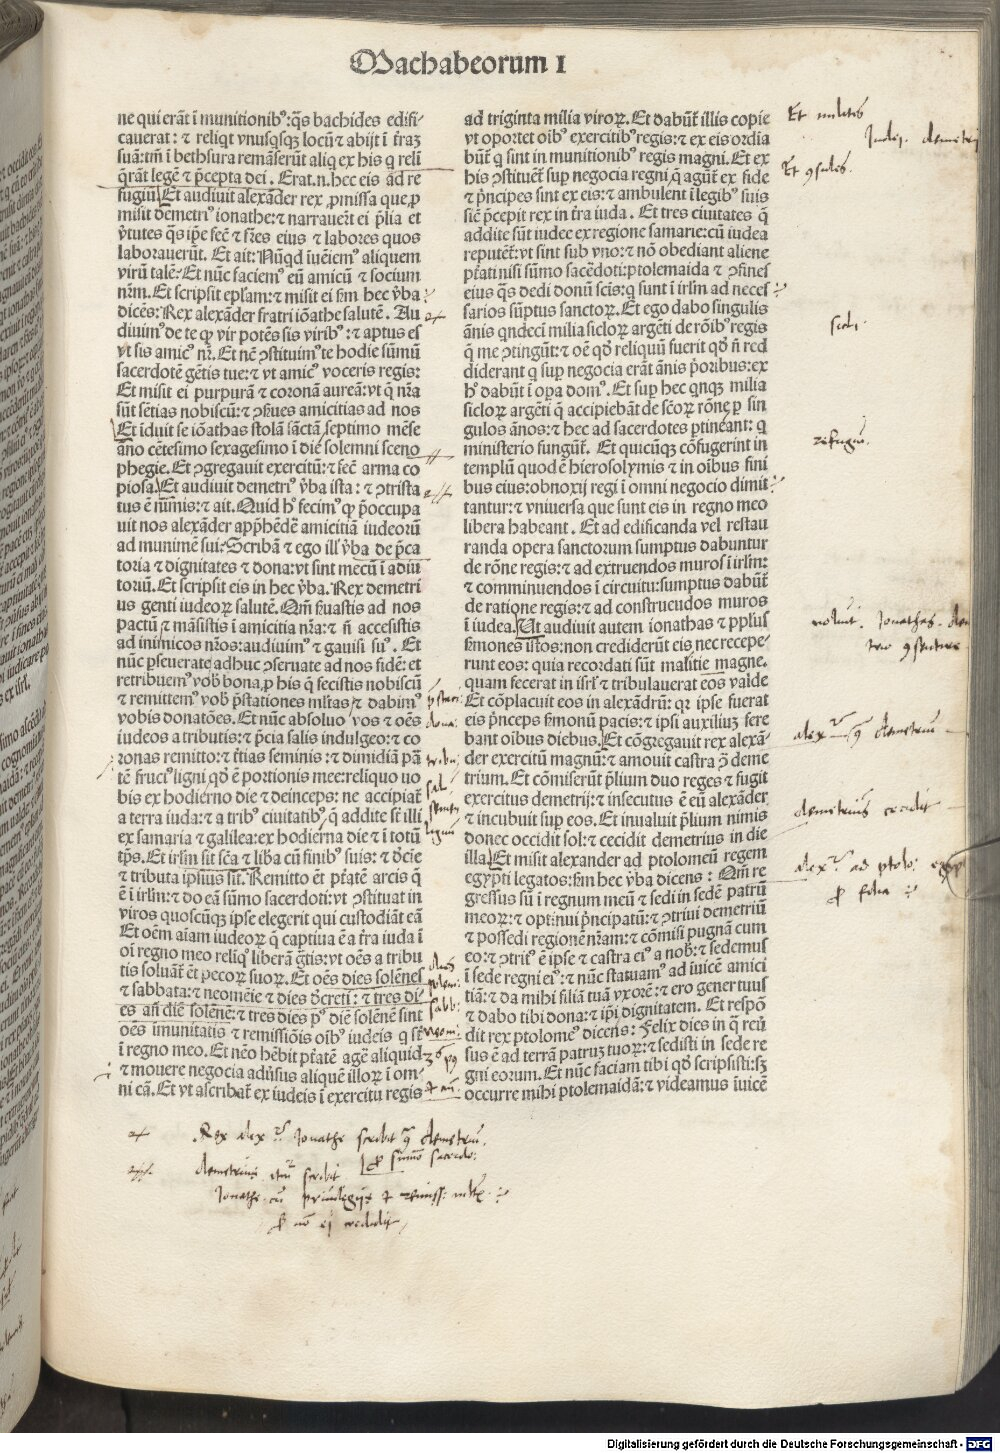 Machabeorum I
ne qui erāt ī munitionibꝰ: q̄s bachides edifi-
cauerat: ⁊ reliqt vnusqsqꝫ locū ⁊ abijt ī t̄raꝫ
suā: tm̄ ī bethsura remāserūt aliq ex his q reli
q̄rāt legē ⁊ p̄cepta dei. Erat.n. hec eis ad re
fugiū. Et audiuit alexāder rex ꝓmissa que ꝓ
misit demetriꝰ ionathe: ⁊ narrauer̄t ei p̄lia et
v̄tutes q̄s ip̄e fec̄ ⁊ fr̄es eius ⁊ labores quos
laborauerūt. Et ait: Nūqd īueniemꝰ aliquem
virū talē: Et nūc faciemꝰ eū amicū ⁊ socium
nr̄m. Et scripsit ep̄lam: ⁊ misit ei ẜm hec v̄ba
dicēs: Rex alexāder fratri iōathe salutē. Au
diuimꝰ de te ꝙ vir potēs sis viribꝰ: ⁊ aptus es
vt sis amicꝰ nr̄. Et nūc ꝯstituimꝰ te hodie sūmū
sacerdotē gētis tue: ⁊ vt amicꝰ voceris regis:
Et misit ei purpurā ⁊ coronā aureā: vt q nr̄a
sūt sētias nobiscū: ⁊ ꝯẜues amicitias ad nos
Et īduit se iōathas stolā sāctā septimo mēse
āno cētesimo sexagesimo ī die solemni sceno
phegie. Et ꝯgregauit exercitū: ⁊ fec̄ arma co
piosa. Et audiuit demetriꝰ v̄ba ista: ⁊ ꝯtrista
tus ē nimis: ⁊ ait. Quid hͦ fecimꝰ ꝙ p̄occupa
uit nos alexāder app̄hēdē amicitiā iudeorū
ad munimē sui: Scribā ⁊ ego ill̓ v̄ba de p̄ca
toria ⁊ dignitates ⁊ dona: vt sint mecū ī adiu
toriū. Et scripsit eis in hec v̄ba. Rex demetri
us genti iudeoꝝ salutē. Qm̄ ẜuastis ad nos
pactū ⁊ māsistis ī amicitia nr̄a: ⁊ n̄ accesistis
ad inimicos nr̄os: audiuimꝰ ⁊ gauisi suꝰ. Et
nūc ꝑseuerate adhuc ꝯseruate ad nos fidē: et
retribuemꝰ vob̄ bona, ꝓ his q̄ fecistis nobiscū
⁊ remittemꝰ vob̄ p̄stationes ml̄tas ⁊ dabimꝰ
vobis donatōes. Et nūc absoluo vos ⁊ oēs
iudeos a tributis: ⁊ p̄cia salis indulgeo: ⁊ co
ronas remitto: ⁊ t̄tias seminis: ⁊ dimidiā pā
tē fructꝰ ligni qd̄ ē portionis mee: reliquo uo
bis ex hodierno die ⁊ deinceps: ne accipiat̄
a terra iuda: ⁊ a tribꝰ ciuitatibꝰ q̄ addite st̄ illi
ex samaria ⁊ galilea: ex hodierna die ⁊ ī totū
tp̄s. Et irl̄m sit sc̄a ⁊ lib̄a cū finibꝰ suis: ⁊ d̄cie
⁊ tributa ipsius sūt. Remitto ēt ptātē arcis q̄
ē ī irl̄m: ⁊ do eā sūmo sacerdoti: vt ꝯstituat in
viros quoscūqꝫ ipse elegerit qui custodiāt eā
Et oēm aīam iudeoꝝ q̄ captiua ē a t̄ra iuda ī
oī regno meo reliqꝰ liberā gr̄tis: vt oēs a tribu
tis soluāt̄ ēt pecoꝝ suoꝝ. Et oēs dies solēnes
⁊ sabbata: ⁊ neomēie ⁊ dies d̄creti: ⁊ tres di
es an̄ diē solēnē: ⁊ tres dies pꝰ diē solēnē sint
oēs imunitatis ⁊ remissiōis oībꝰ iudeis q̄ st̄
ī regno meo. Et nēo hēbit ptātē agē aliquid
⁊ mouere negocia adūsus aliquē illoꝝ ī om-
ni cā. Et vt ascribāt̄ ex iudeis ī exercitu regis
ad triginta milia viroꝝ. Et dabūt̄ illis copie
vt oportet oībꝰ exercitibꝰ regis: ⁊ ex eis ordia
būt̄ q̄ sint in munitionibꝰ regis magni. Et ex
his ꝯstituēt̄ suꝑ negocia regni q̄ agūt̄ ex fide
⁊ p̄ncipes sint ex eis: ⁊ ambulent ī legibꝰ suis
sic̄ p̄cepit rex in t̄ra iuda. Et tres ciuitates q̄
addite sūt iudee ex regione samarie: cū iudea
reputēt̄: vt sint sub vno: ⁊ nō obediant aliene
p̄tati nisi sūmo sac̄doti: ptolemaida ⁊ ꝯfines
eius q̄s dedi donū sc̄is: q̄ sunt ī irl̄m ad neces
sarios sūptus sanctoꝝ. Et ego dabo singulis
ānis qndeci milia sicloꝝ argēti de rōibꝰ regis
q̄ me ꝯtingūt: ⁊ oē qd̄ reliquū fuerit qd̄ n̄ red
diderant q suꝑ negocia erāt ānis p̄oribus: ex
hͦ dabūt ī oꝑa domꝰ. Et suꝑ hec qnqꝫ milia
sicloꝝ argēti q̄ accipiebāt de sc̄oꝝ rōne ꝑ sin
gulos ānos: ⁊ hec ad sacerdotes ꝑtineāt: q
ministerio fungūt̄. Et quicūqꝫ cōfugerint in
templū quod ē hierosolymis ⁊ in oībus fini
bus eius: obnoxij regi ī omni negocio dimit
tantur: ⁊ vniuersa que sunt eis in regno meo
libera habeant. Et ad edificanda vel restau
randa opera sanctorum sumptus dabuntur
de rōne regis: ⁊ ad extruendos muros ī irl̄m:
⁊ comminuendos ī circuitu: sumptus dabūt̄
de ratione regis: ⁊ ad construcudos muros
ī iudea. Ut audiuit autem ionathas ⁊ pplus
ẜmones istos: non crediderūt eis nec recepe-
runt eos: quia recordati sūt malitie magne.
quam fecerat in isrl̄ ⁊ tribulauerat eos valde
Et cōplacuit eos in alexādrū: qꝛ ipse fuerat
eis p̄nceps ẜmonū pacis: ⁊ ipsi auxiliuꝫ fere
bant oībus diebus. Et cōgregauit rex alexā-
der exercitū magnū: ⁊ amouit castra ꝯ̄ deme
trium. Et cōmiserūt p̄lium duo reges ⁊ fugit
exercitus demetrij: ⁊ insecutus ē eū alexāder
⁊ incubuit suꝑ eos. Et inualuit p̄lium nimis
donec occidit sol: ⁊ cecidit demetrius in die
illa. Et misit alexander ad ptolomeū regem
egypti legatos: ẜm hec v̄ba dicens: Qm̄ re
gressus sū ī regnum meū ⁊ sedi in sedē patrū
meoꝝ: ⁊ optinui p̄ncipatū: ⁊ ꝯtriui demetriū
⁊ possedi regionē nr̄am: ⁊ cōmisi pugnā cum
eo: ⁊ ꝯtritꝰ ē ipse ⁊ castra eiꝰ a nob̄: ⁊ sedemus
ī sede regni eiꝰ: ⁊ nūc statuamꝰ ad iuicē amici
tiā: ⁊ da mihi filiā tuā vxorē: ⁊ ero gener tuus
⁊ dabo tibi dona: ⁊ ip̄i dignitatem. Et respō
dit rex ptolomeꝰ dicens: Felix dies in q̄ reū
sus ē ad terrā patruꝫ tuoꝝ: ⁊ sedisti in sede re
gni eorum. Et nūc faciam tibi qd̄ scripsisti: sꝫ
occurre mihi ptolemaidā: ⁊ videamus īuicē
Et militēs
Et ꝯsules.
refugiū.
noluit. Jonathas.
alexʳ. ꝯ̄ demetriū
demetrius cecidit
alexʳ. ad ptolo:
Rex alexʳ Jonathe scribit ꝯ̄ demetriū.
demetrius etiā scribit
ꝙ nō ei credidit
Digitalisierung gefördert durch die Deutsche Forschungsgemeinschaft - DFG